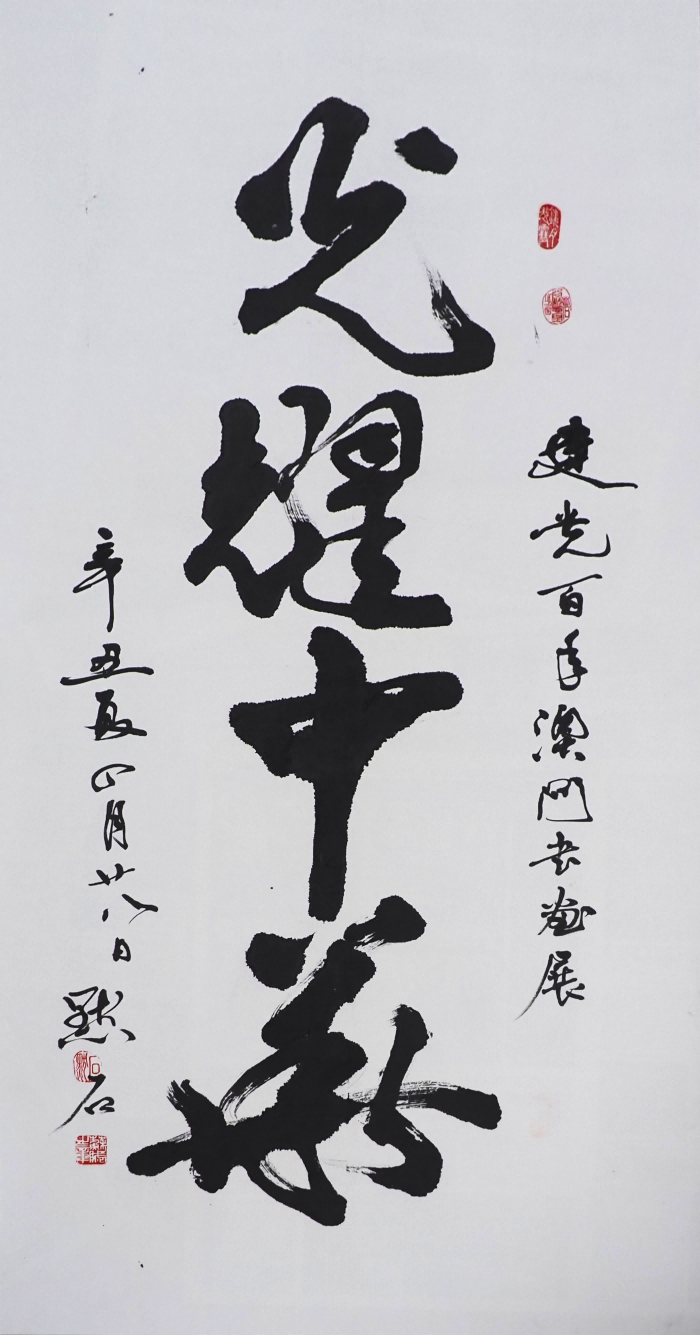 建党百年澳門書畫展
光耀中華
辛丑夏四月廿八日 默石